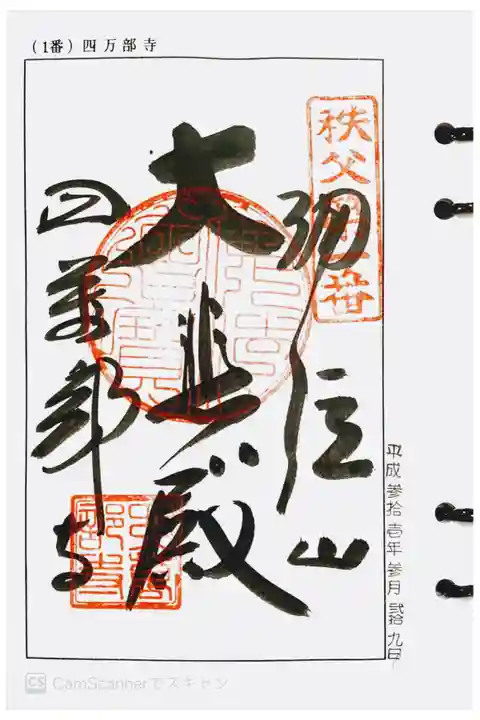 (1番)四万部寺
秩父第一番
誦経山
大悲殿
四萬部寺
平成参拾壱年参月弐拾九日
CS CamScannerでスキャン